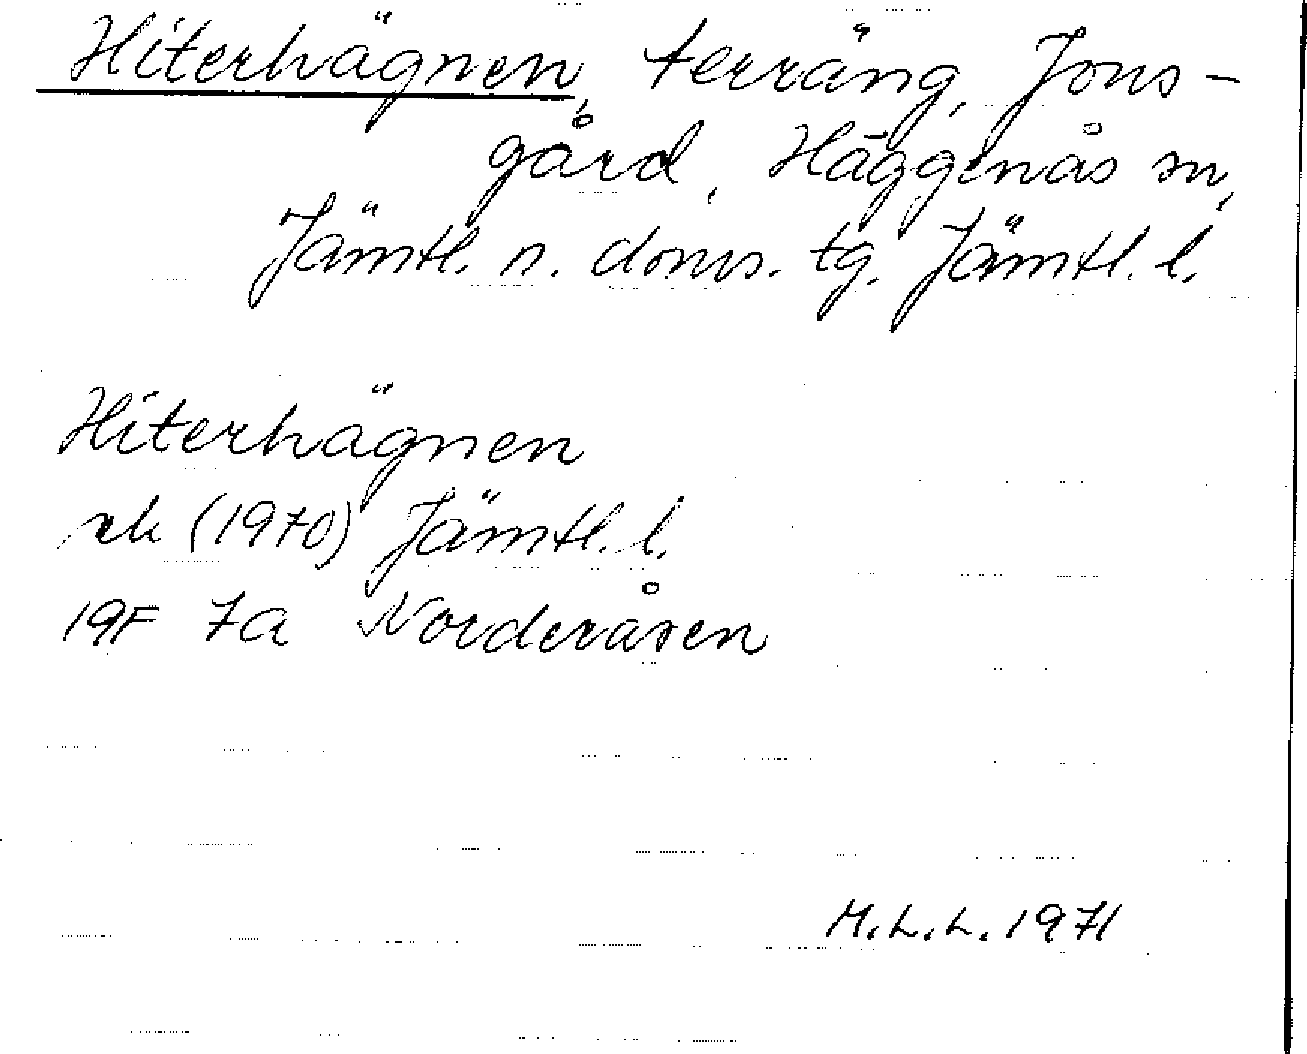 Hiterhägnen, terräng, Jons-
gård, Häggenås sn,
Jämtl. n. doms. tg. Jämtl. l.
Hiterhägnen
rek (1970) Jämtl. l.
19F 7a Norderåsen
M.L.L. 1971